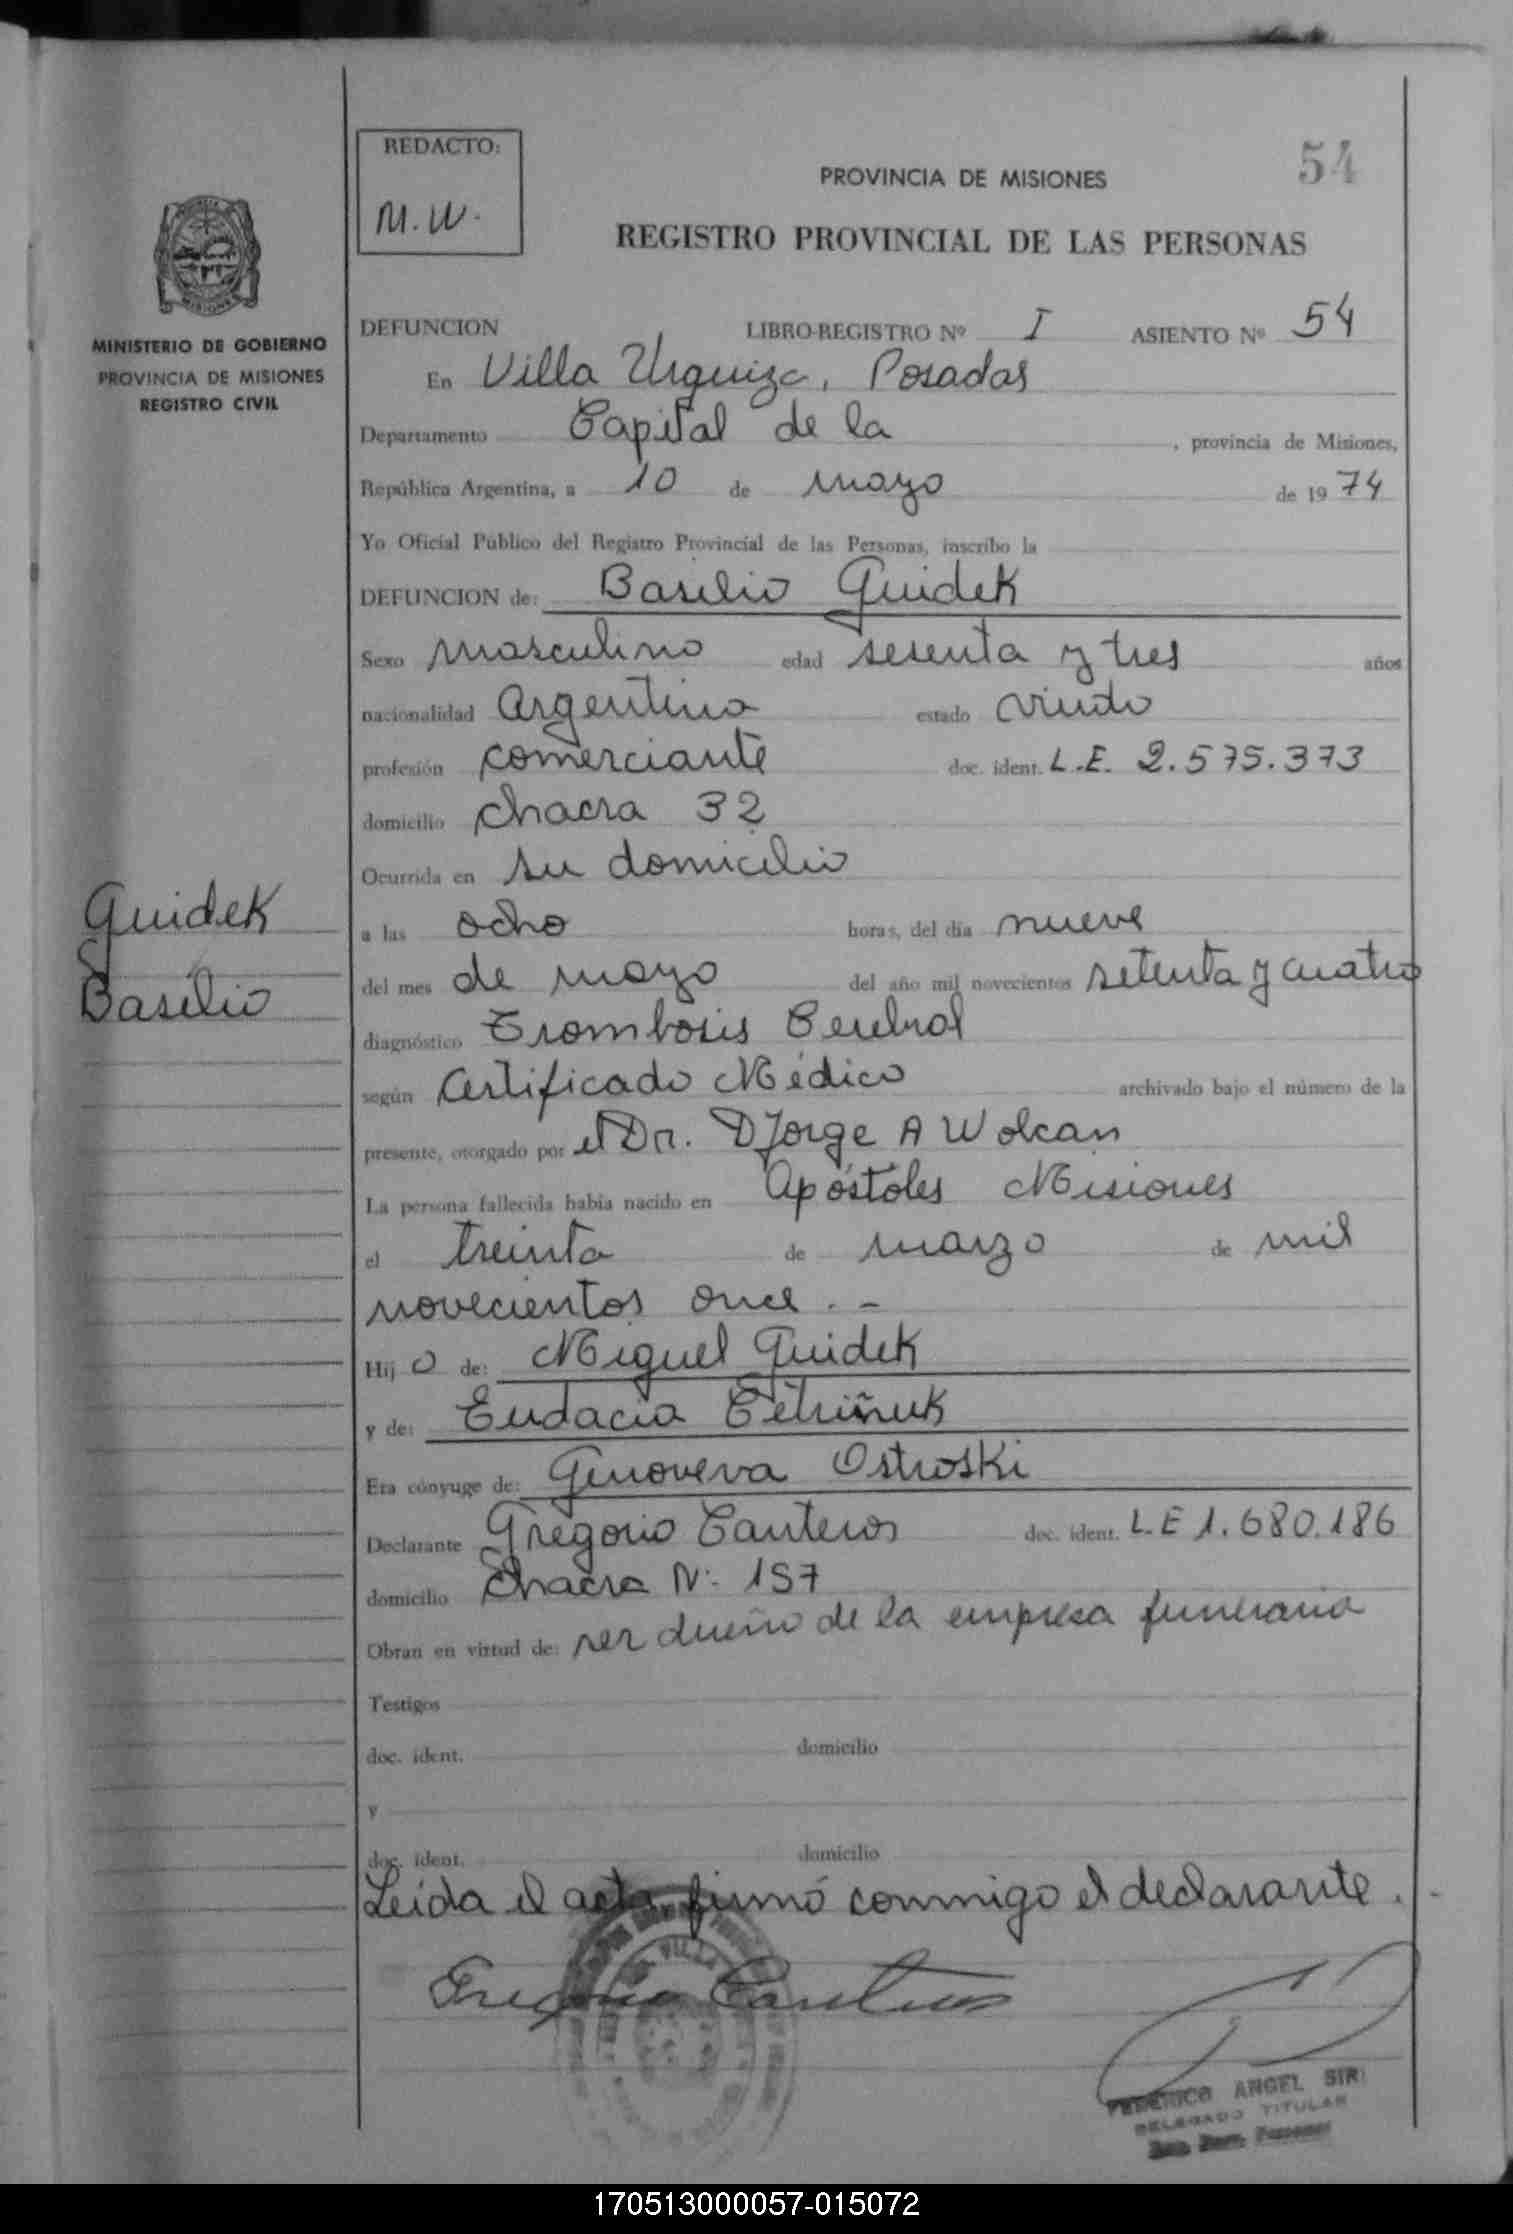 REDACTO:
M.W.
54
PROVINCIA DE MISIONES
REGISTRO PROVINCIAL DE LAS PERSONAS
MISIONES
MINISTERIO DE GOBIERNO
PROVINCIA DE MISIONES
REGISTRO CIVIL
DEFUNCION LIBRO-REGISTRO Nº I ASIENTO Nº 54
En Villa Urquiza, Posadas
Departamento Capital de la , provincia de Misiones,
República Argentina, a 10 de mayo de 1974
Yo Oficial Público del Registro Provincial de las Personas, inscribo la
DEFUNCION de: Basilio Guidek
Sexo masculino edad sesenta y tres años
nacionalidad Argentina estado viudo
profesión comerciante doc. ident. L.E. 2.575.373
domicilio chacra 32
Ocurrida en su domicilio
Guidek
Basilio
a las ocho horas, del día nueve
del mes de mayo del año mil novecientos setenta y cuatro
diagnóstico Trombosis Cerebral
según Certificado Médico archivado bajo el número de la
presente, otorgado por el Dr. D Jorge A Wolcan
La persona fallecida había nacido en Apóstóles Misiones
el treinta de marzo de mil
novecientos once . -
Hij o de: Miguel Guidek
y de: Eudacia Petriñuk
Era cónyuge de: Genoveva Ostroski
Declarante Gregorio Canteros doc. ident. L.E 1.680.186
domicilio Chacra Nº 157
Obran en virtud de: ser dueño de la empresa funeraria
Testigos
doc. ident. domicilio
y
doc. ident. domicilio
Leída el acta firmó conmigo el declarante .
Gregorio Canteros
VILLA
FEDERICO ANGEL SIRI
DELEGADO TITULAR
170513000057-015072